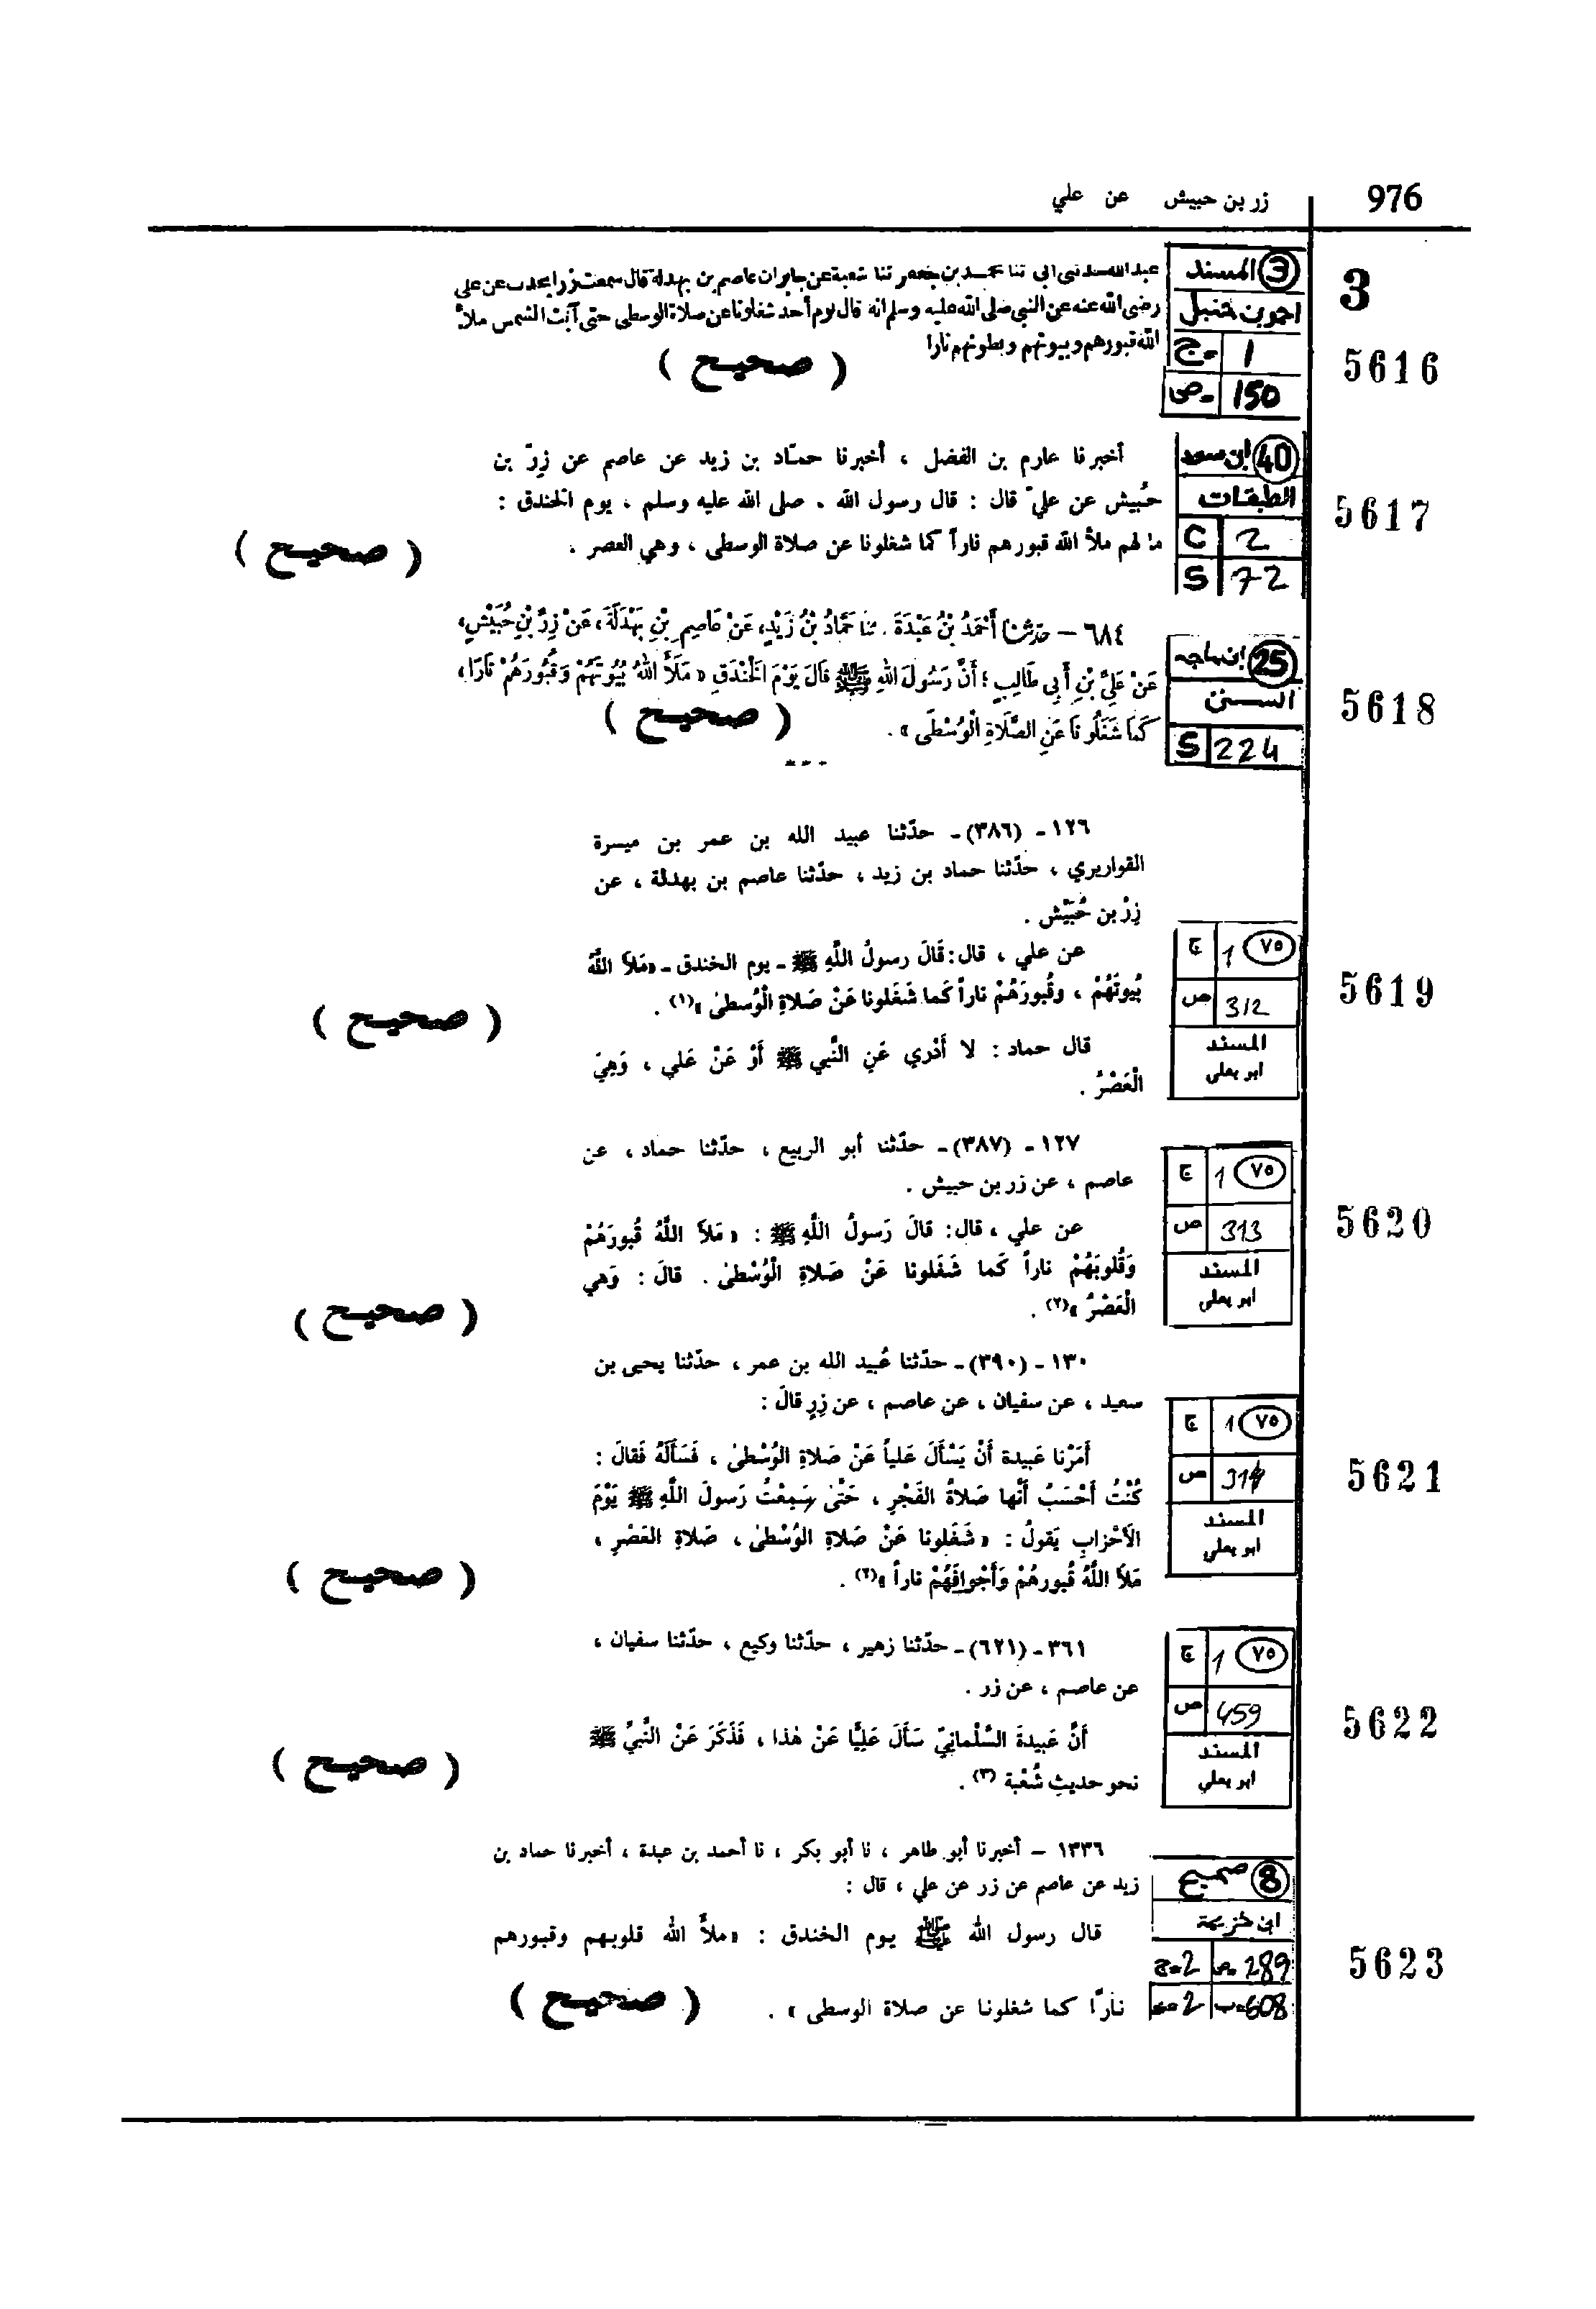 976
زر بن حبيش عن علي
3
5616
③ المسند
احمد بن حنبل
ج 1
ص 150
عبد الله حدثني ابى ثنا محمد بن جعفر ثنا شعبة عن جابر ان عاصم بن بهدلة قال سمعت زرا يحدث عن على
رضى الله عنه عن النبي صلى الله عليه وسلم انه قال يوم أحد شغلونا عن صلاة الوسطى حتى آبت الشمس ملأ
الله قبورهم وبيوتهم وبطونهم نارا
( صحيح )
5617
40 ابن سعد
الطبقات
C 2
S 72
أخبرنا عارم بن الفضل ، أخبرنا حمّاد بن زيد عن عاصم عن زِرّ بن
حُبيش عن عليّ قال : قال رسول الله ، صلى الله عليه وسلم ، يوم الخندق :
ما لهم ملأ الله قبورهم ناراً كما شغلونا عن صلاة الوسطى ، وهي العصر .
( صحيح )
5618
25 ابن ماجه
السنن
S 224
٦٨٤ – حدثنا أَحْمَدُ بْنُ عَبْدَةَ . ثنا حَمَّادُ بْنُ زَيْدٍ، عَنْ عَاصِمِ بْنِ بَهْدَلَةَ، عَنْ زِرِّ بْنِ حُبَيْشٍ،
عَنْ عَلِيِّ بْنِ أَبِي طَالِبٍ؛ أَنَّ رَسُولَ اللهِ ﷺ قَالَ يَوْمَ الْخَنْدَقِ « مَلَأَ اللهُ بُيُوتَهُمْ وَقُبُورَهُمْ نَارًا،
كَمَا شَغَلُونَا عَنِ الصَّلَاةِ الْوُسْطَى » .
( صحيح )
5619
٧٥ 1 ج
312 ص
المسند
ابو يعلى
١٢٦ - (٣٨٦) - حدّثنا عبيد الله بن عمر بن ميسرة
القواريري ، حدّثنا حماد بن زيد ، حدّثنا عاصم بن بهدلة ، عن
زِرْ بن حُبَيْش .
عن علي ، قال: قَالَ رسولُ اللَّهِ ﷺ - يوم الخندق - «مَلأَ اللَّهُ
بُيوتَهُمْ ، وقُبورَهُمْ ناراً كَما شَغَلونا عَنْ صَلاةِ الْوُسطىٰ »(١) .
( صحيح )
قال حماد : لا أدْري عَنِ النَّبي ﷺ أَوْ عَنْ عَلي ، وَهِيَ
الْعَصْرُ .
5620
٧٥ 1 ج
313 ص
المسند
ابو يعلى
١٢٧ - (٣٨٧) - حدّثنا أبو الربيع ، حدّثنا حماد ، عن
عاصم ، عن زر بن حبيش .
عن علي ، قال: قالَ رَسولُ اللَّهِ ﷺ : « مَلأَ اللَّهُ قُبورَهُمْ
وَقُلوبَهُمْ ناراً كَما شَغَلونا عَنْ صَلاةِ الْوُسْطىٰ . قالَ : وَهي
الْعَصْرُ »(٢) .
( صحيح )
5621
٧٥ 1 ج
314 ص
المسند
ابو يعلي
١٣٠ - (٣٩٠) - حدّثنا عُبيد الله بن عمر ، حدّثنا يحيى بن
سعيد ، عن سفيان ، عن عاصم ، عن زِرٍ قالَ :
أَمَرْنا عَبيدة أَنْ يَسْأَلَ عَلياً عَنْ صَلاةِ الوُسْطىٰ ، فَسَأَلَهُ فَقالَ :
كُنْتُ أَحْسَبُ أَنَّها صَلاةُ الفَجْرِ ، حَتَّىٰ سَمِعْتُ رَسولَ اللَّهِ ﷺ يَوْمَ
الأَحْزابِ يَقولُ : « شَغَلونا عَنْ صَلاةِ الوُسْطىٰ ، صَلاةِ العَصْرِ ،
مَلأَ اللَّهُ قُبورهُمْ وَأَجْوافَهُمْ ناراً »(٢) .
( صحيح )
5622
٧٥ 1 ج
459 ص
المسند
ابو يعلي
٣٦١ - (٦٢١) - حدّثنا زهير ، حدّثنا وكيع ، حدّثنا سفيان ،
عن عاصم ، عن زر .
أَنَّ عَبيدةَ السَّلْمانِيّ سَأَلَ عَلِيًّا عَنْ هٰذا ، فَذَكَرَ عَنْ النَّبيِّ ﷺ
نحو حديثِ شُعْبة (٣) .
( صحيح )
5623
8 صحيح
ابن خزيمة
289 ص 2 ج
608 ب 2
١٣٣٦ – أخبرنا أبو طاهر ، نا أبو بكر ، نا أحمد بن عبدة ، أخبرنا حماد بن
زيد عن عاصم عن زر عن علي ، قال :
قال رسول الله ﷺ يوم الخندق : «ملأ الله قلوبهم وقبورهم
نارًا كما شغلونا عن صلاة الوسطى » .
( صحيح )